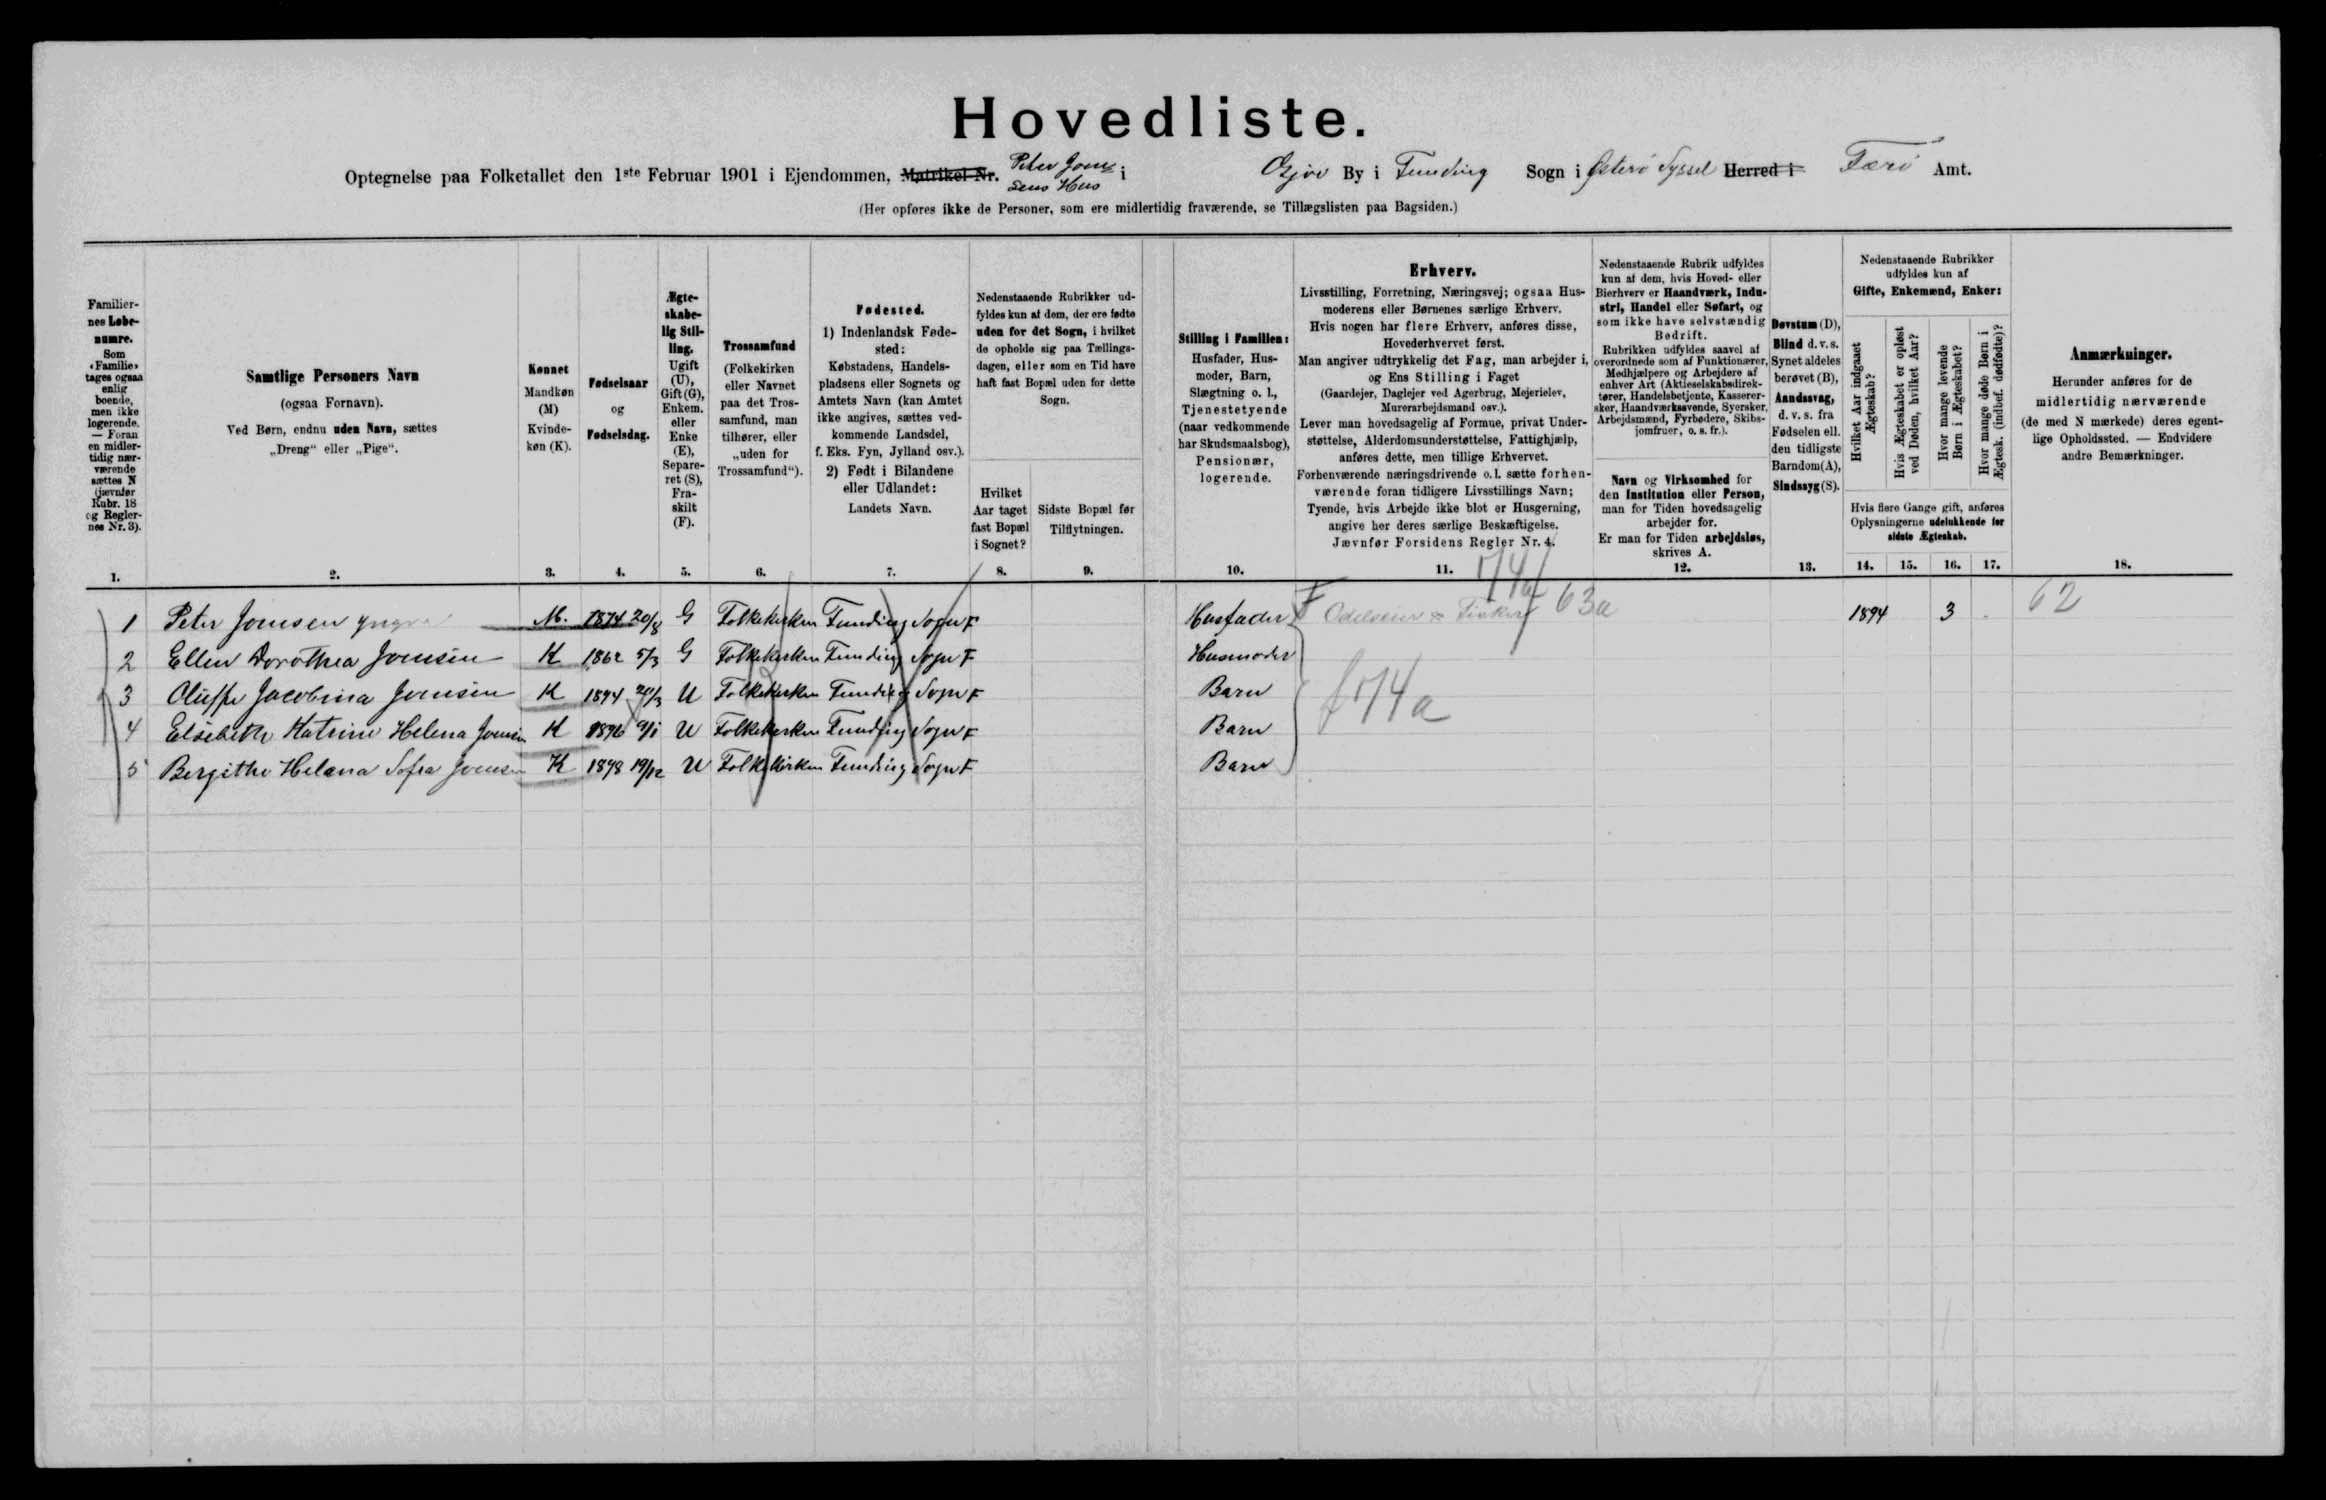 Hovedliste.
Optegnelse paa Folketallet den 1ste Februar 1901 i Ejendommen, Matrikel Nr. Peter Joensens Hus i Gjov By i Funding Sogn i Østerø Syssel Herred i Færø Amt.
(Her opføres ikke de Personer, som ere midlertidig fraværende, se Tillægslisten paa Bagsiden.)
Familiernes Løbenumre.
Som
«Familie»
tages ogsaa
enlig
boende,
men ikke
logerende.
— Foran
en midler-
tidig nær-
værende
sættes N
(jævnfør
Rubr. 18
og Regler-
nes Nr. 3).
1.
Samtlige Personers Navn
(ogsaa Fornavn).
Ved Børn, endnu uden Navn, sættes
„Dreng“ eller „Pige“.
2.
Kønnet
Mandkøn
(M)
Kvinde-
køn (K).
3.
Fødselsaar
og
Fødselsdag.
4.
Ægte-
skabe-
lig Stil-
ling.
Ugift
(U),
Gift (G),
Enkem.
eller
Enke
(E),
Separe-
ret (S),
Fra-
skilt
(F).
5.
Trossamfund
(Folkekirken
eller Navnet
paa det Tros-
samfund, man
tilhører, eller
„uden for
Trossamfund“).
6.
Fødested.
1) Indenlandsk Føde-
sted:
Købstadens, Handels-
pladsens eller Sognets og
Amtets Navn (kan Amtet
ikke angives, sættes ved-
kommende Landsdel,
f. Eks. Fyn, Jylland osv.).
2) Født i Bilandene
eller Udlandet:
Landets Navn.
7.
Nedenstaaende Rubrikker ud-
fyldes kun af dem, der ere fødte
uden for det Sogn, i hvilket
de opholde sig paa Tællings-
dagen, eller som en Tid have
haft fast Bopæl uden for dette
Sogn.
Hvilket
Aar taget
fast Bopæl
i Sognet?
8.
Sidste Bopæl før
Tilflytningen.
9.
Stilling i Familien:
Husfader, Hus-
moder, Barn,
Slægtning o. l.,
Tjenestetyende
(naar vedkommende
har Skudsmaalsbog),
Pensionær,
logerende.
10.
Erhverv.
Livsstilling, Forretning, Næringsvej; ogsaa Hus-
moderens eller Børnenes særlige Erhverv.
Hvis nogen har flere Erhverv, anføres disse,
Hovederhvervet først.
Man angiver udtrykkelig det Fag, man arbejder i,
og Ens Stilling i Faget
(Gaardejer, Daglejer ved Agerbrug, Mejerielev,
Murerarbejdsmand osv.).
Lever man hovedsagelig af Formue, privat Under-
støttelse, Alderdomsunderstøttelse, Fattighjælp,
anføres dette, men tillige Erhvervet.
Forhenværende næringsdrivende o. l. sætte forhen-
værende foran tidligere Livsstillings Navn;
Tyende, hvis Arbejde ikke blot er Husgerning,
angive her deres særlige Beskæftigelse.
Jævnfør Forsidens Regler Nr. 4.
11.
Nedenstaaende Rubrik udfyldes
kun af dem, hvis Hoved- eller
Bierhverv er Haandværk, Indu-
stri, Handel eller Søfart, og
som ikke have selvstændig
Bedrift.
Rubrikken udfyldes saavel af
overordnede som af Funktionærer,
Medhjælpere og Arbejdere af
enhver Art (Aktieselskabsdirek-
tører, Handelsbetjente, Kasserer-
sker, Haandværkssvende, Syersker,
Arbejdsmænd, Fyrbødere, Skibs-
jomfruer, o. s. fr.).
Navn og Virksomhed for
den Institution eller Person,
man for Tiden hovedsagelig
arbejder for.
Er man for Tiden arbejdsløs,
skrives A.
12.
Døvstum (D),
Blind d. v. s.
Synet aldeles
berøvet (B),
Aandssvag,
d. v. s. fra
Fødselen ell.
den tidligste
Barndom (A),
Sindssyg (S).
13.
Nedenstaaende Rubrikker
udfyldes kun af
Gifte, Enkemænd, Enker:
Hvilket Aar indgaaet
Ægteskab?
Hvis Ægteskabet er opløst
ved Døden, hvilket Aar?
Hvor mange levende
Børn i Ægteskabet?
Hvor mange døde Børn i
Ægtesk. (indbef. dødfødte)?
Hvis flere Gange gift, anføres
Oplysningerne udelukkende for
sidste Ægteskab.
14. 15. 16. 17.
Anmærkninger.
Herunder anføres for de
midlertidig nærværende
(de med N mærkede) deres egent-
lige Opholdssted. — Endvidere
andre Bemærkninger.
18.
1 Peter Joensen yngre M. 1874 20/8 G Folkekirken Funding Sogn F Husfader F Odelseier & Fisker 63a 1894 3 - 62
2 Ellen Dorothea Joensen K 1862 5/3 G Folkekirken Funding Sogn F Husmoder
3 Oluffe Jacobina Joensen K 1894 20/3 U Folkekirken Funding Sogn F Barn
4 Elsebeth Katrine Helena Joensen K 1896 9/1 U Folkekirken Funding Sogn F Barn
5 Bergithe Helena Sofia Joensen K 1898 19/12 U Folkekirken Funding Sogn F Barn